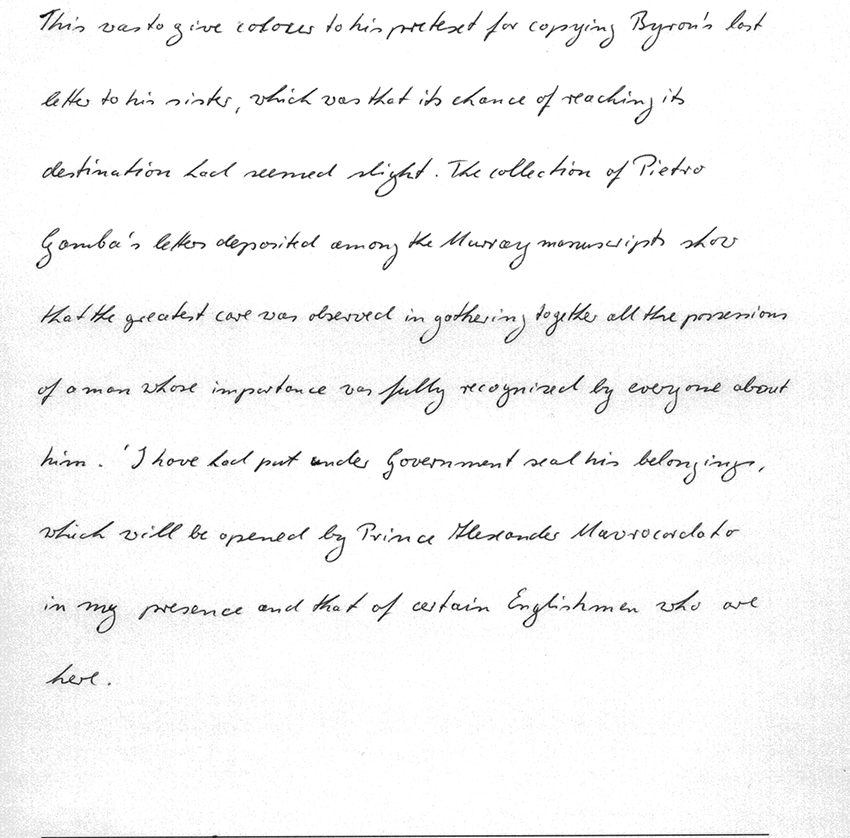 This was to give colour to his pretext for copying Byron's last
letter to his sister, which was that its chance of reaching its
destination had seemed slight. The collection of Pietro
Gamba's letters deposited among the Murray manuscripts show
that the greatest care was observed in gathering together all the possessions
of a man whose importance was fully recognized by everyone about
him. 'I have had put under Government seal his belongings,
which will be opened by Prince Alexander Mavrocordato
in my presence and that of certain Englishmen who are
here.